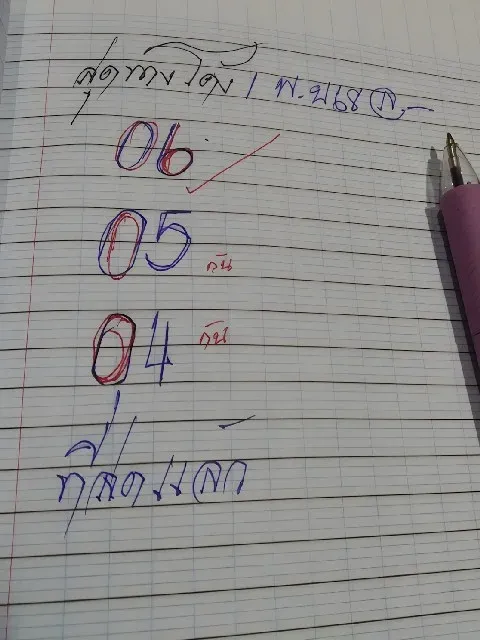 สุดทางโค้ง 1 พ.ย 68
06
05 กัน
04 กัน
ที่สุดแล้ว